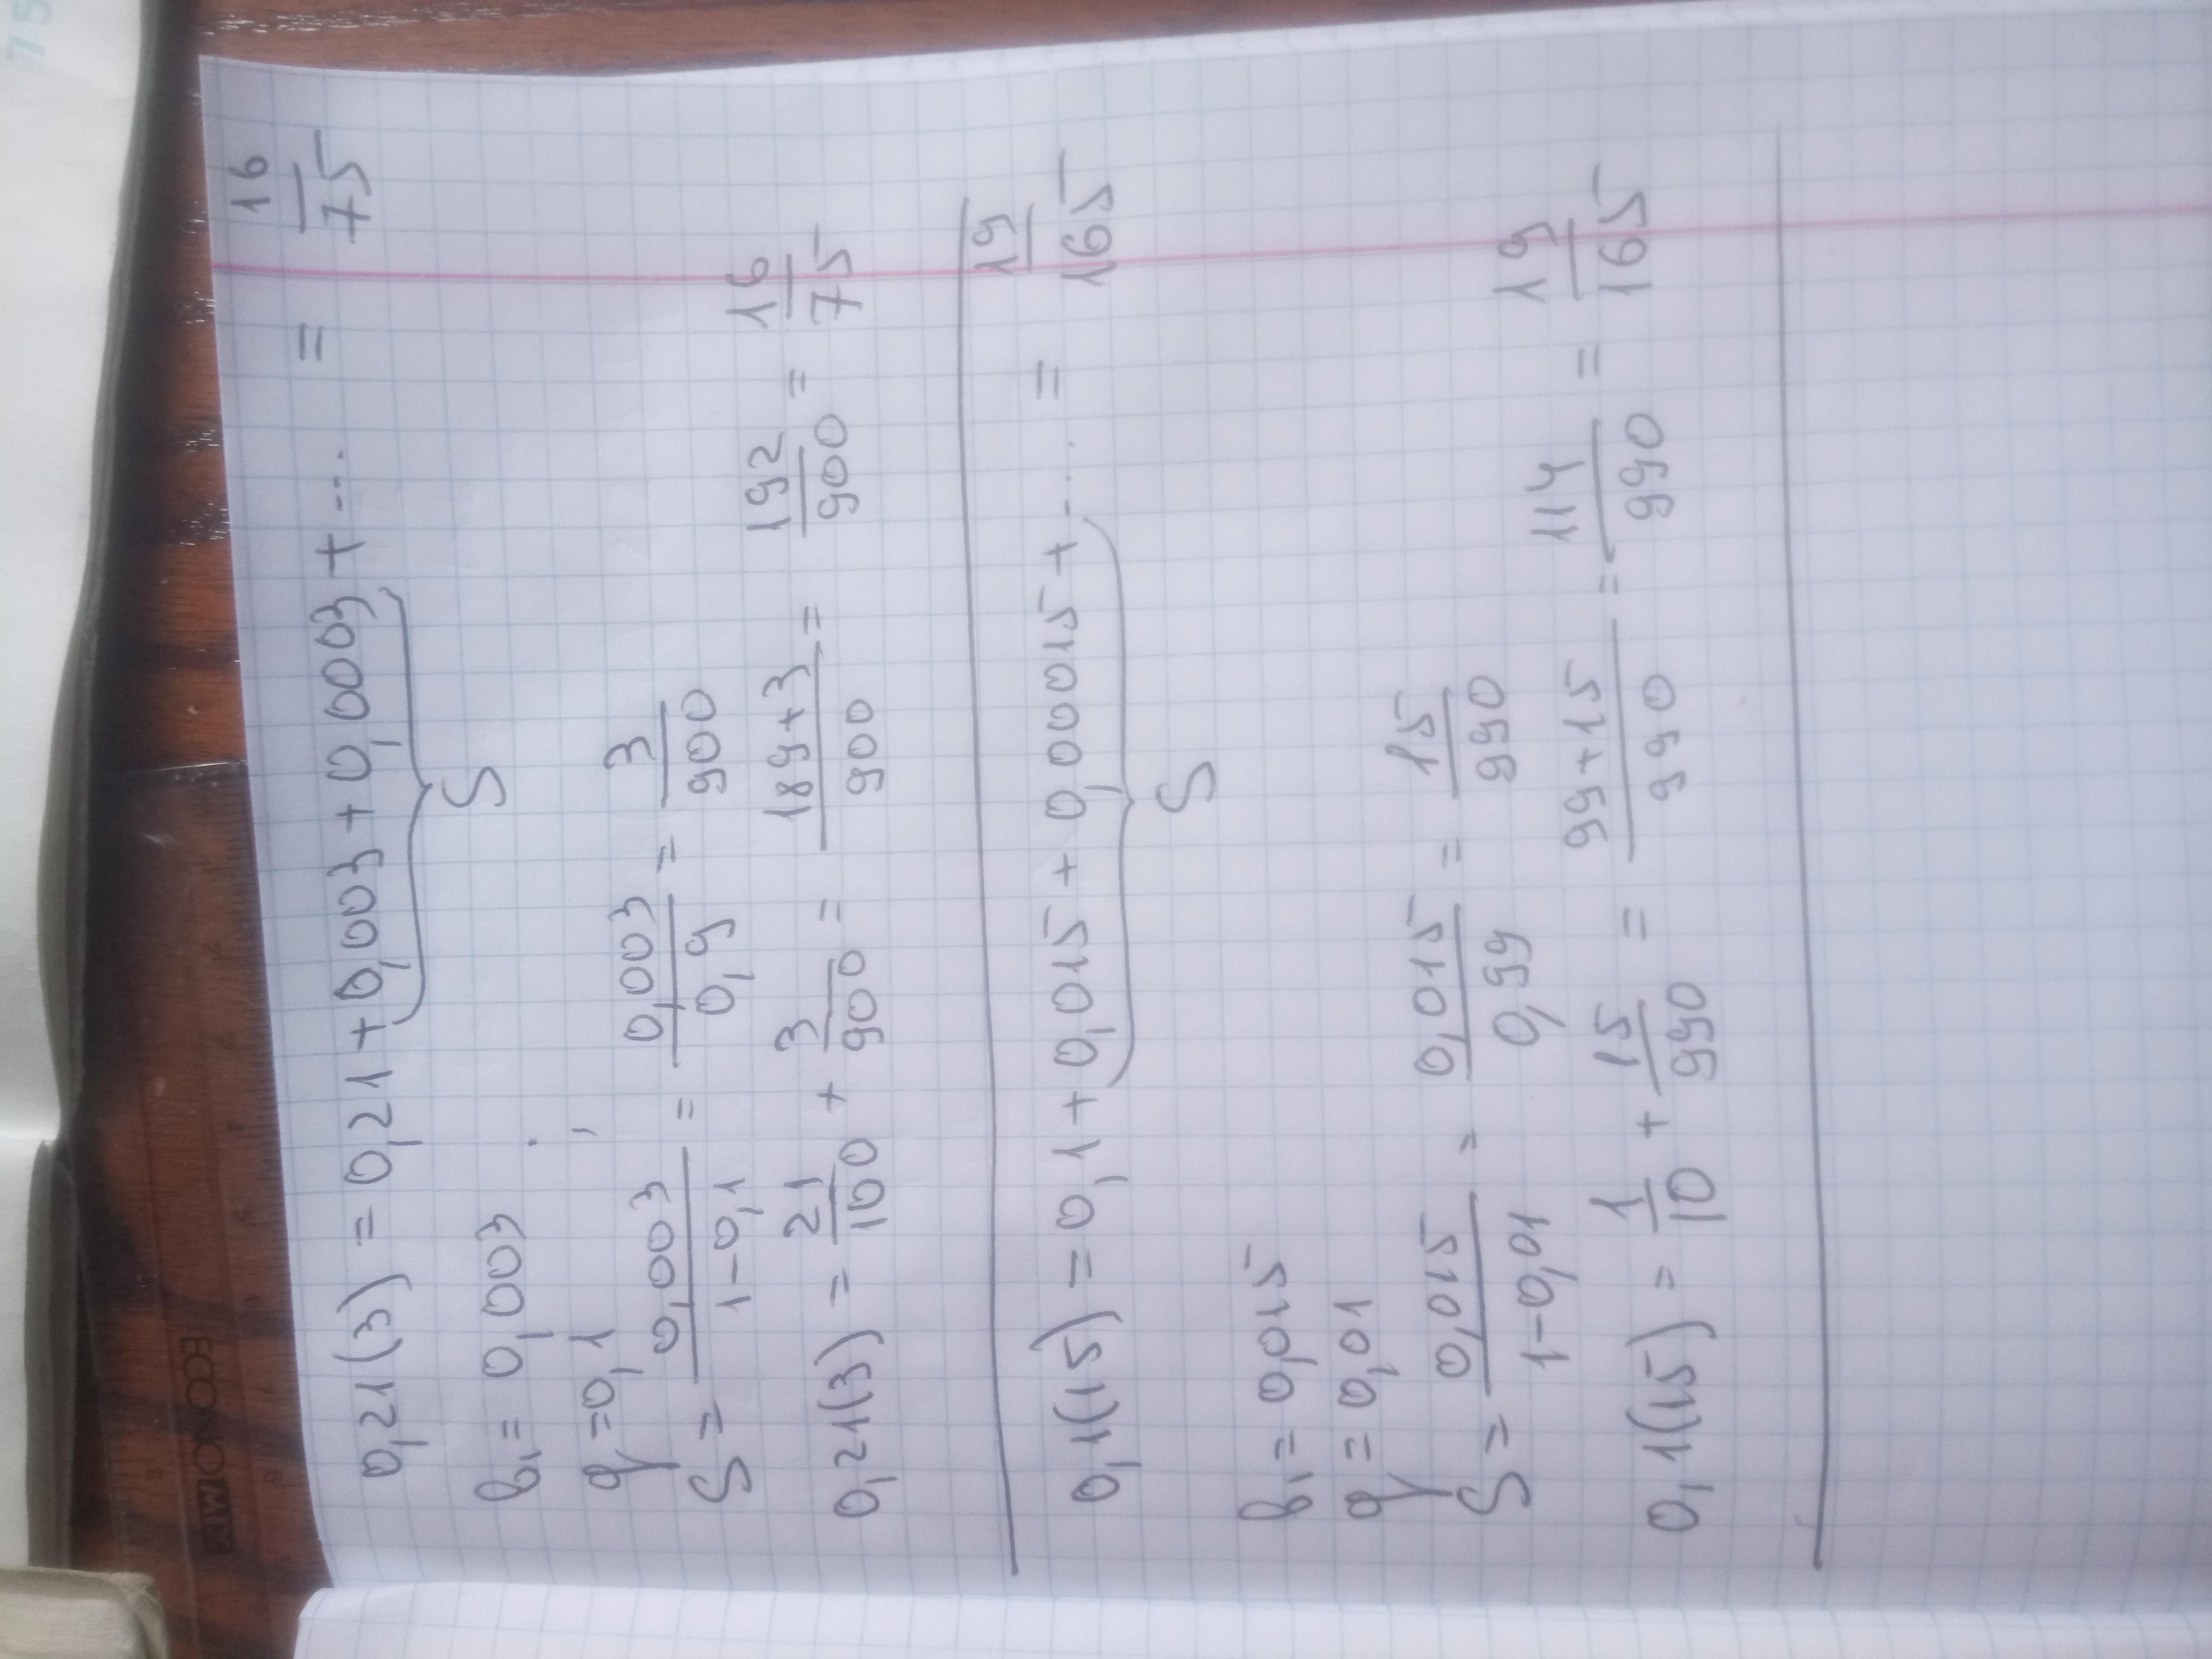 0,21(3) = 0,21 + 0,003 + 0,0003 + ... = 16/75
S
b₁ = 0,003
q = 0,1
S = 0,003/(1-0,1) = 0,003/0,9 = 3/900
0,21(3) = 21/100 + 3/900 = (189+3)/900 = 192/900 = 16/75
0,1(15) = 0,1 + 0,015 + 0,00015 + ... = 19/165
S
b₁ = 0,015
q = 0,01
S = 0,015/(1-0,01) = 0,015/0,99 = 15/990
0,1(15) = 1/10 + 15/990 = (99+15)/990 = 114/990 = 19/165
75